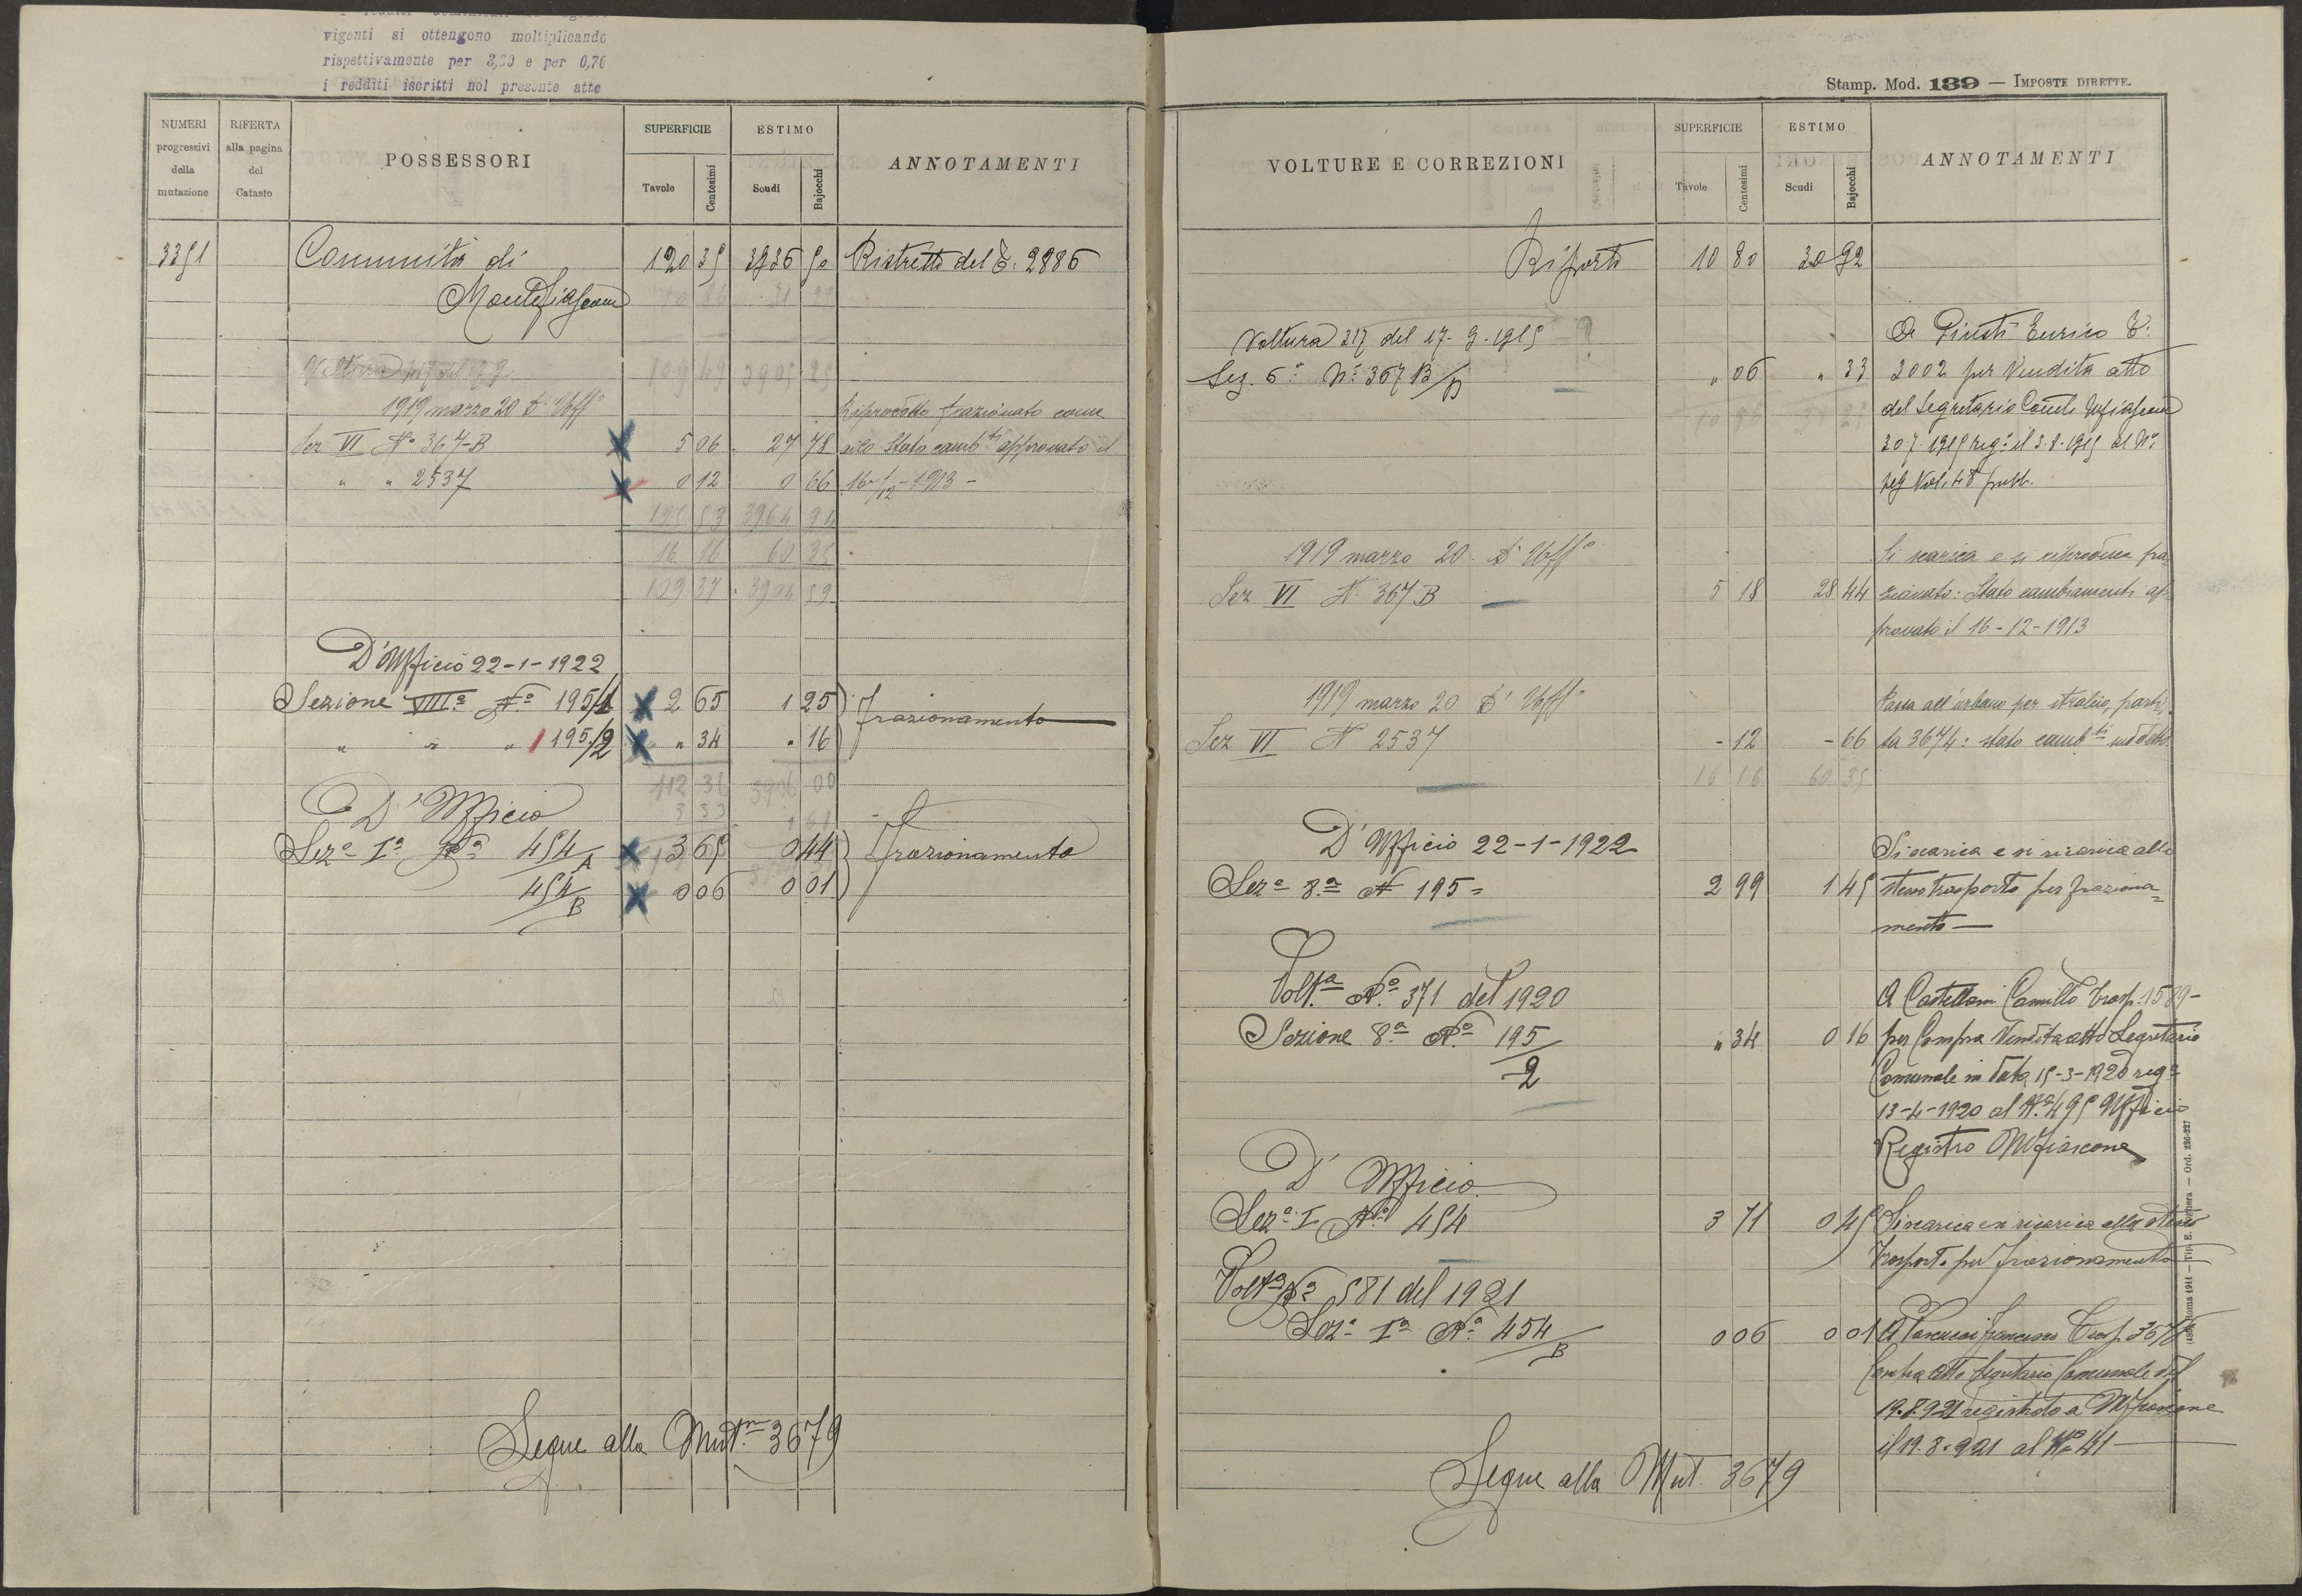 vigenti si ottengono moltiplicando
rispettivamente per 3,20 e per 0,76
i redditi iscritti nel presente atto
NUMERI progressivi della mutazione
RIFERTA alla pagina del Catasto
POSSESSORI
SUPERFICIE
Tavole
Centesimi
ESTIMO
Scudi
Bajocchi
ANNOTAMENTI
3351 Comunità di 120 35 3936 50 Ristretto del T. 2886
Montefiascone 10 86 31 25
109 49 3905 25
1919 marzo 20 D'Uff° Riprodotto frazionato come
Sez VI N° 367-B 5 06 27 78 allo Stato camb.ti approvato il
" " 2537 0 12 0 66 16-/12-1913-
125 53 3964 94
16 16 60 35
109 37 3904 59
D'Ufficio 22-1-1922
Sezione VIIIª N° 195/1 2 65 1 25 frazionamento
" " " 195/2 " 34 " 16
112 36 3906 00
3 33
D'Ufficio
Sezª Iª Nº 454/A 3 65 0 44 frazionamento
454/B 0 06 0 01
Segue alla Mut.ne 3679
Stamp. Mod. 139 — IMPOSTE DIRETTE.
VOLTURE E CORREZIONI
SUPERFICIE
Tavole
Centesimi
ESTIMO
Scudi
Bajocchi
ANNOTAMENTI
Riporto 10 80 30 92
Voltura 317 del 17-9-1915 A Giusti Enrico T.
Sez. 6ª N° 367 B/B " 06 " 33 2002 per Vendita atto
10 86 31 25 del Segretario Com.le Mfiascone
30-7-1915 reg° il 3-8-1915 al N°
Vol. 48 pubb.
1919 marzo 20 D'Uff° Si scarica e si riproduce fra
Sez VI N 367B 5 18 28 44 zionato: Stato cambiamenti ap
provato il 16-12-1913
1919 marzo 20 D'Uff° Passa all'urbano per stralcio, parti
Sez VI N 2537 - 12 - 66 ta 3674: stato camb.ti suddetto
16 16 60 35
D'Ufficio 22-1-1922 Si scarica e si ricarica allo
Sezª 8ª N 195= 2 99 1 45 stesso trasporto per fraziona=
mento—
Voltª N° 371 del 1920 A Castellani Camillo Trasp. 1589-
Sezione 8ª N° 195/2 " 34 0 16 per Compra Vendita atto Segretario
Comunale in data 15-3-1920 regº
13-4-1920 al Nº 495 Ufficio
Registro Mfiascone
D'Ufficio
Sezª I Nº 454 3 71 0 45 Si scarica e si ricarica allo stesso
Trasporto per frazionamento
Voltª Nº 581 del 1921
Sezª Iª Nº 454/B 0 06 0 01 A Francesco Trasp. 3678
Compra atto Segretario Comunale del
19.8.921 registrato a Mfiascone
il 19.8.921 al Nº 41—
Segue alla Mut. 3679